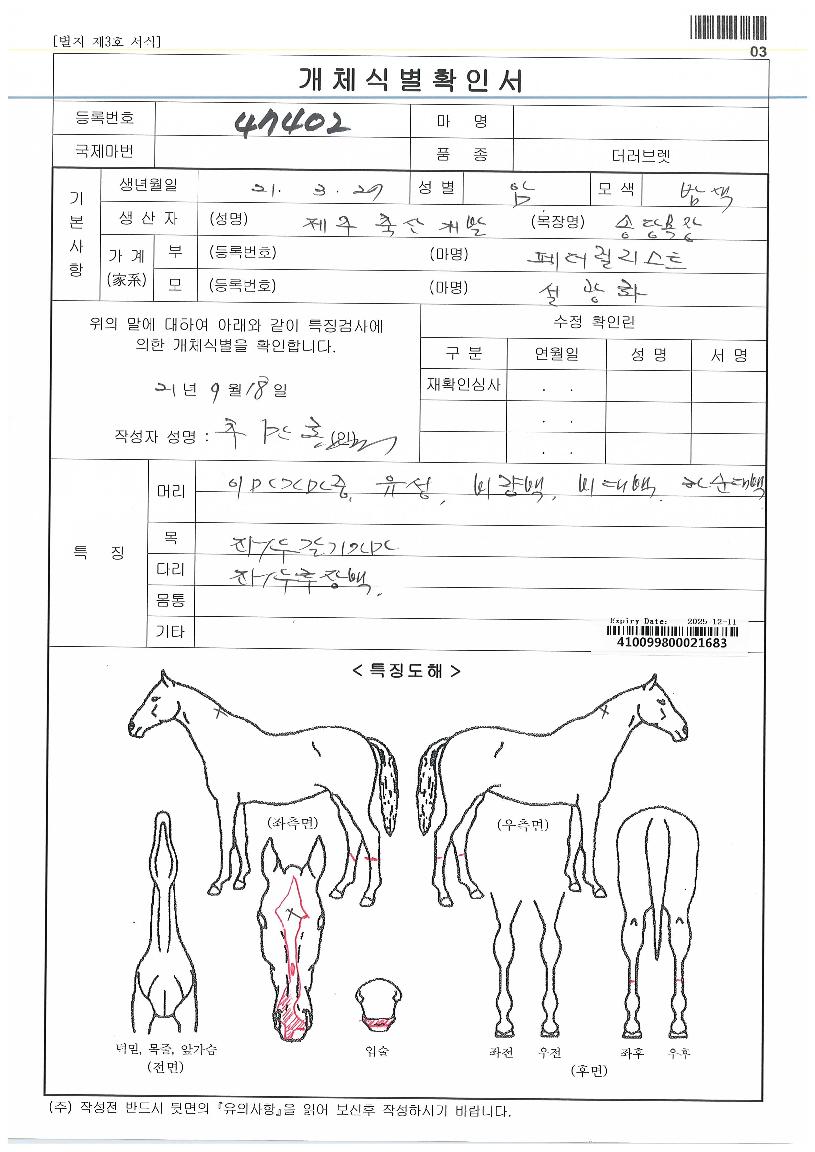 [별지 제3호 서식]
03
개체식별확인서
등록번호 47402 마 명
국제마번 품 종 더러브렛
기본사항
생년월일 21. 3. 27 성별 암 모색 밤색
생산자 (성명) 제주축산개발 (목장명) 송당목장
가계 (家系) 부 (등록번호) (마명) 페더럴리스트
모 (등록번호) (마명) 설광화
위의 말에 대하여 아래와 같이 특징검사에
의한 개체식별을 확인합니다.
21년 9월 18일
작성자 성명 : (인)
수정 확인란
구분 연월일 성명 서명
재확인심사 . .
. .
. .
특 징
머리 유성, 비량백, 비대백, 하순대백
목
다리 좌우후장백.
몸통
기타
Expiry Date: 2025-12-11
410099800021683
< 특징도해 >
(좌측면) (우측면)
턱밑, 목줄, 앞가슴
(전면)
입술
좌전 우전 좌후 우후
(후면)
(주) 작성전 반드시 뒷면의 『유의사항』을 읽어 보신후 작성하시기 바랍니다.